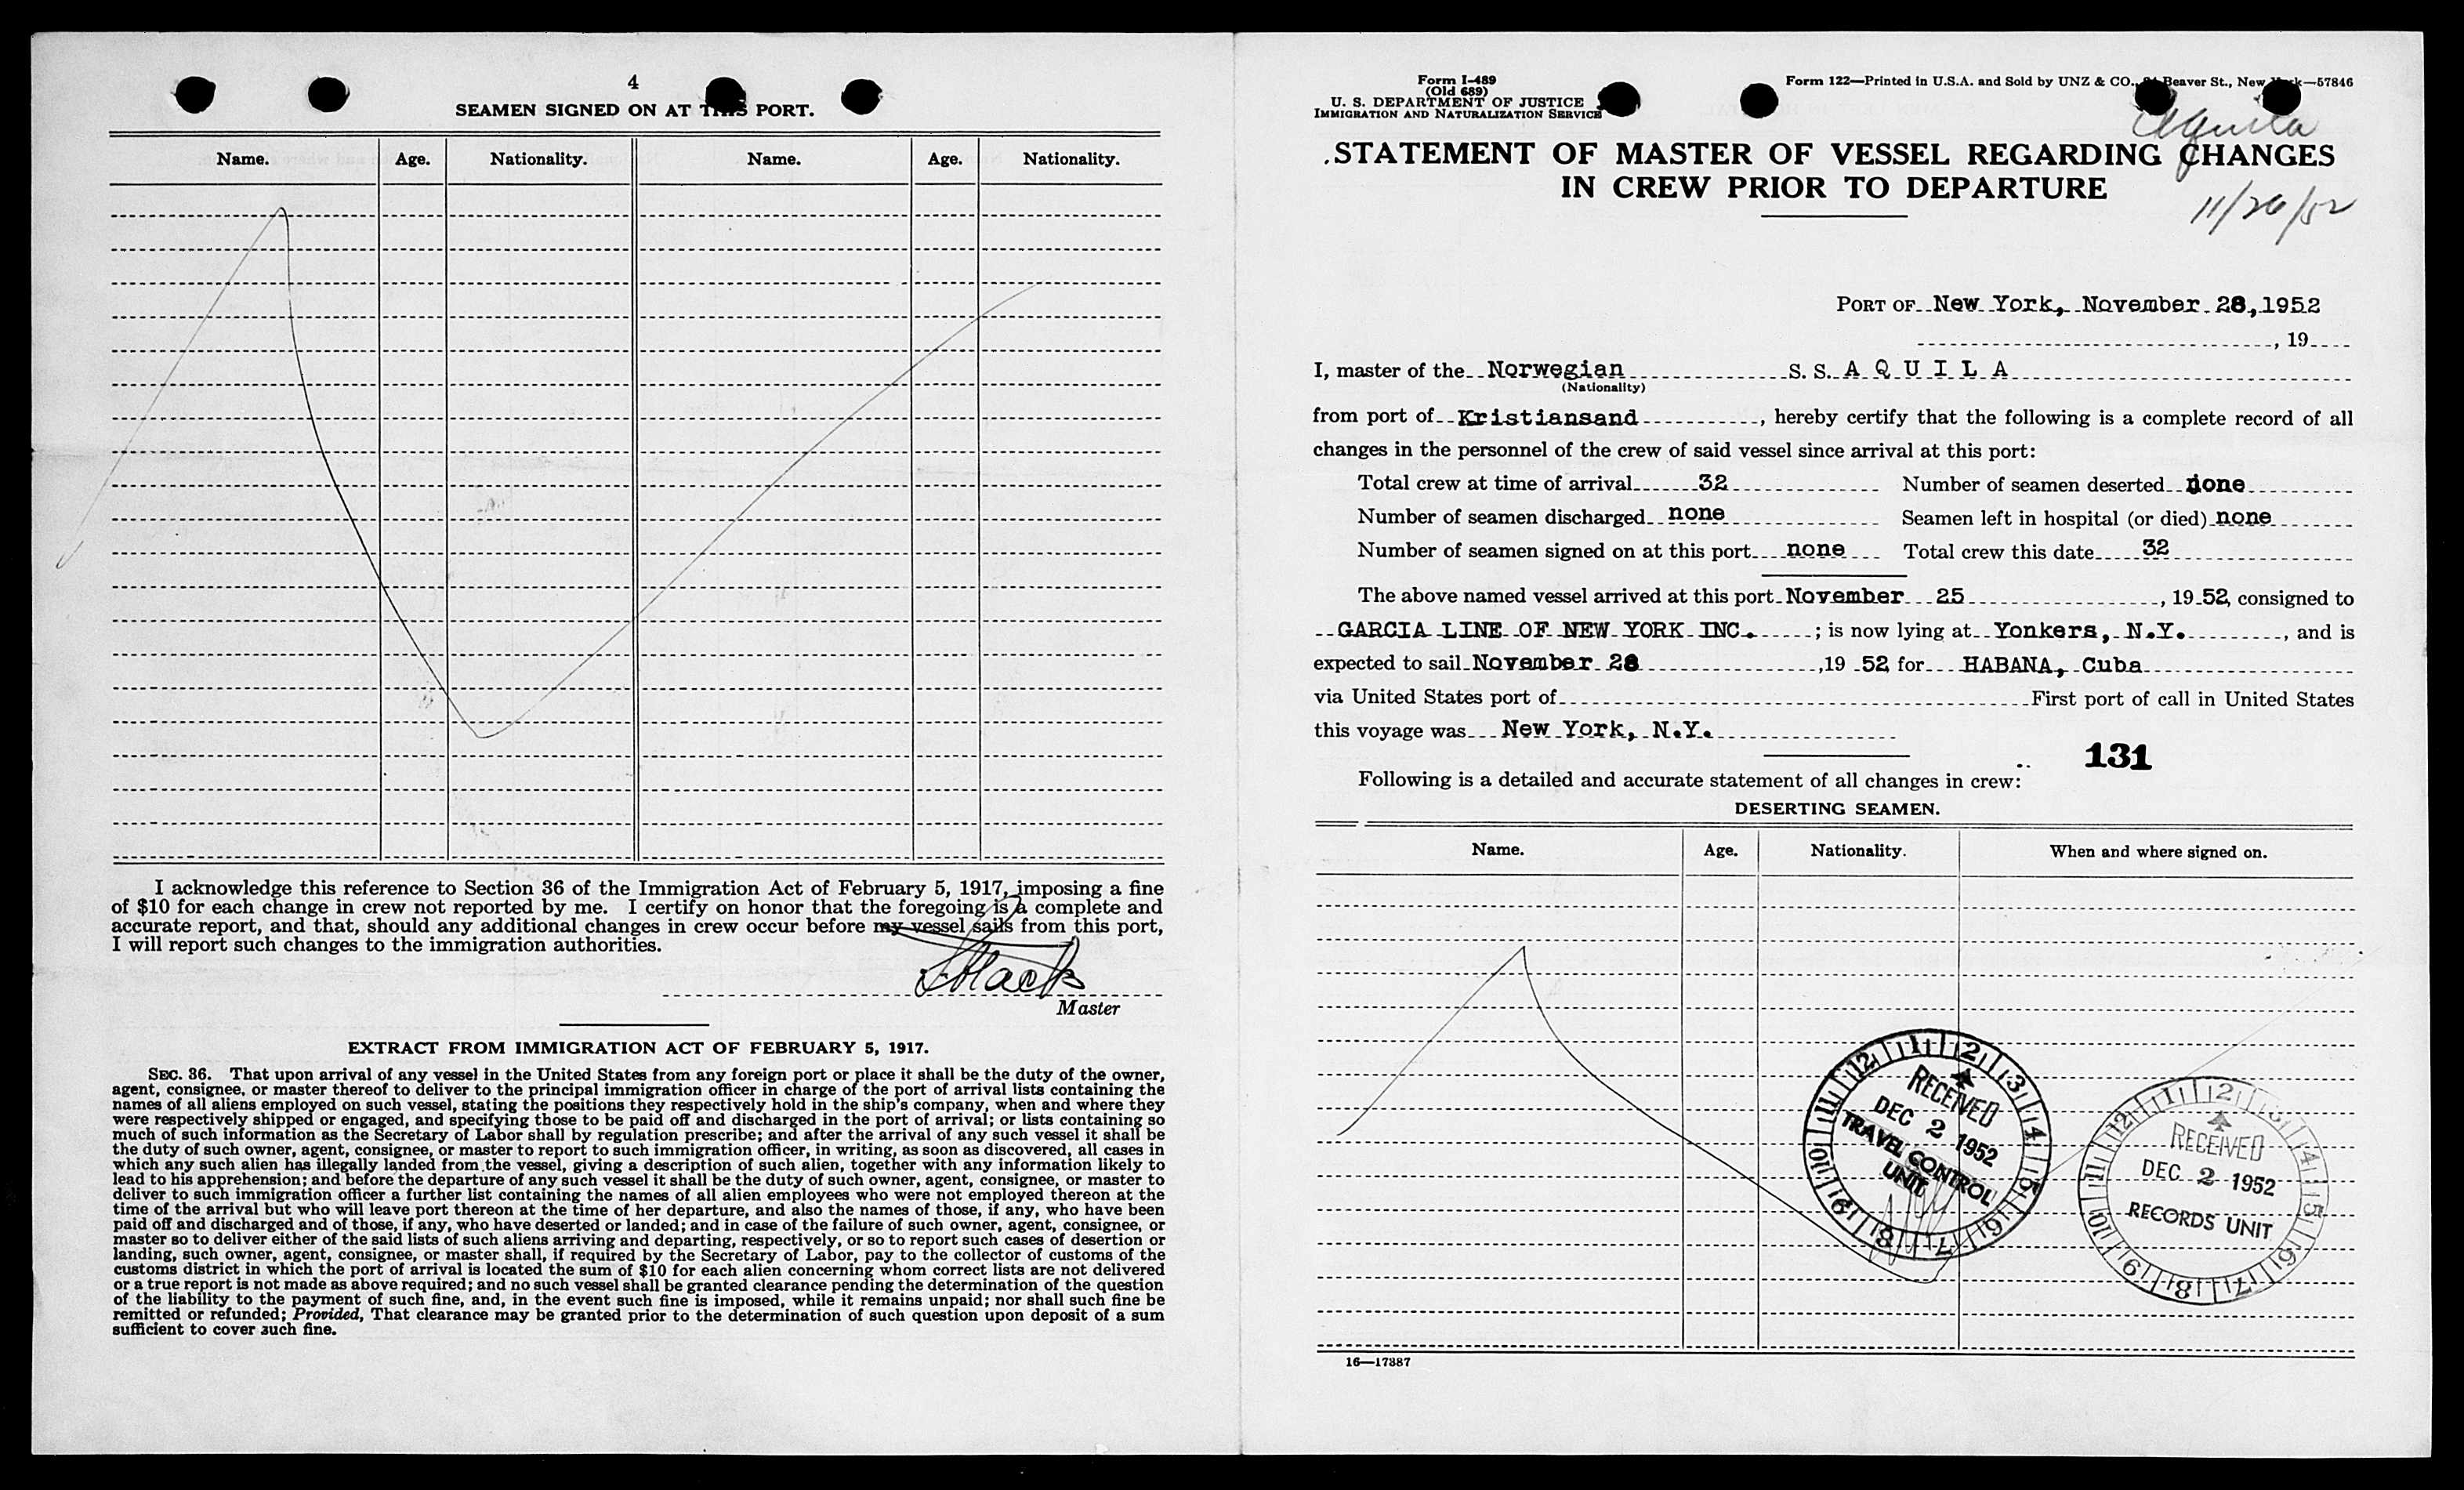 4
SEAMEN SIGNED ON AT THIS PORT.
Name. Age. Nationality. Name. Age. Nationality.
I acknowledge this reference to Section 36 of the Immigration Act of February 5, 1917, imposing a fine
of $10 for each change in crew not reported by me. I certify on honor that the foregoing is a complete and
accurate report, and that, should any additional changes in crew occur before my vessel sails from this port,
I will report such changes to the immigration authorities.
Master
EXTRACT FROM IMMIGRATION ACT OF FEBRUARY 5, 1917.
SEC. 36. That upon arrival of any vessel in the United States from any foreign port or place it shall be the duty of the owner,
agent, consignee, or master thereof to deliver to the principal immigration officer in charge of the port of arrival lists containing the
names of all aliens employed on such vessel, stating the positions they respectively hold in the ship's company, when and where they
were respectively shipped or engaged, and specifying those to be paid off and discharged in the port of arrival; or lists containing so
much of such information as the Secretary of Labor shall by regulation prescribe; and after the arrival of any such vessel it shall be
the duty of such owner, agent, consignee, or master to report to such immigration officer, in writing, as soon as discovered, all cases in
which any such alien has illegally landed from the vessel, giving a description of such alien, together with any information likely to
lead to his apprehension; and before the departure of any such vessel it shall be the duty of such owner, agent, consignee, or master to
deliver to such immigration officer a further list containing the names of all alien employees who were not employed thereon at the
time of the arrival but who will leave port thereon at the time of her departure, and also the names of those, if any, who have been
paid off and discharged and of those, if any, who have deserted or landed; and in case of the failure of such owner, agent, consignee, or
master so to deliver either of the said lists of such aliens arriving and departing, respectively, or so to report such cases of desertion or
landing, such owner, agent, consignee, or master shall, if required by the Secretary of Labor, pay to the collector of customs of the
customs district in which the port of arrival is located the sum of $10 for each alien concerning whom correct lists are not delivered
or a true report is not made as above required; and no such vessel shall be granted clearance pending the determination of the question
of the liability to the payment of such fine, and, in the event such fine is imposed, while it remains unpaid; nor shall such fine be
remitted or refunded; Provided, That clearance may be granted prior to the determination of such question upon deposit of a sum
sufficient to cover such fine.
Form I-489
(Old 689)
U. S. DEPARTMENT OF JUSTICE
IMMIGRATION AND NATURALIZATION SERVICE
Form 122—Printed in U.S.A. and Sold by UNZ & CO., Beaver St., New York—57846
Aquila
STATEMENT OF MASTER OF VESSEL REGARDING CHANGES
IN CREW PRIOR TO DEPARTURE
11/26/52
PORT OF New York, November 28, 1952
, 19
I, master of the Norwegian S. S. A Q U I L A
(Nationality)
from port of Kristiansand, hereby certify that the following is a complete record of all
changes in the personnel of the crew of said vessel since arrival at this port:
Total crew at time of arrival 32 Number of seamen deserted none
Number of seamen discharged none Seamen left in hospital (or died) none
Number of seamen signed on at this port none Total crew this date 32
The above named vessel arrived at this port November 25, 19 52, consigned to
GARCIA LINE OF NEW YORK INC. ; is now lying at Yonkers, N.Y. , and is
expected to sail November 28, 19 52 for HABANA, Cuba
via United States port of First port of call in United States
this voyage was New York, N.Y.
131
Following is a detailed and accurate statement of all changes in crew:
DESERTING SEAMEN.
Name. Age. Nationality. When and where signed on.
12 1 2 3 4 5 6 7 8 9 10 11
RECEIVED
DEC 2 1952
TRAVEL CONTROL
UNIT
12 1 2 3 4 5 6 7 8 9 10 11
RECEIVED
DEC 2 1952
RECORDS UNIT
16—17887